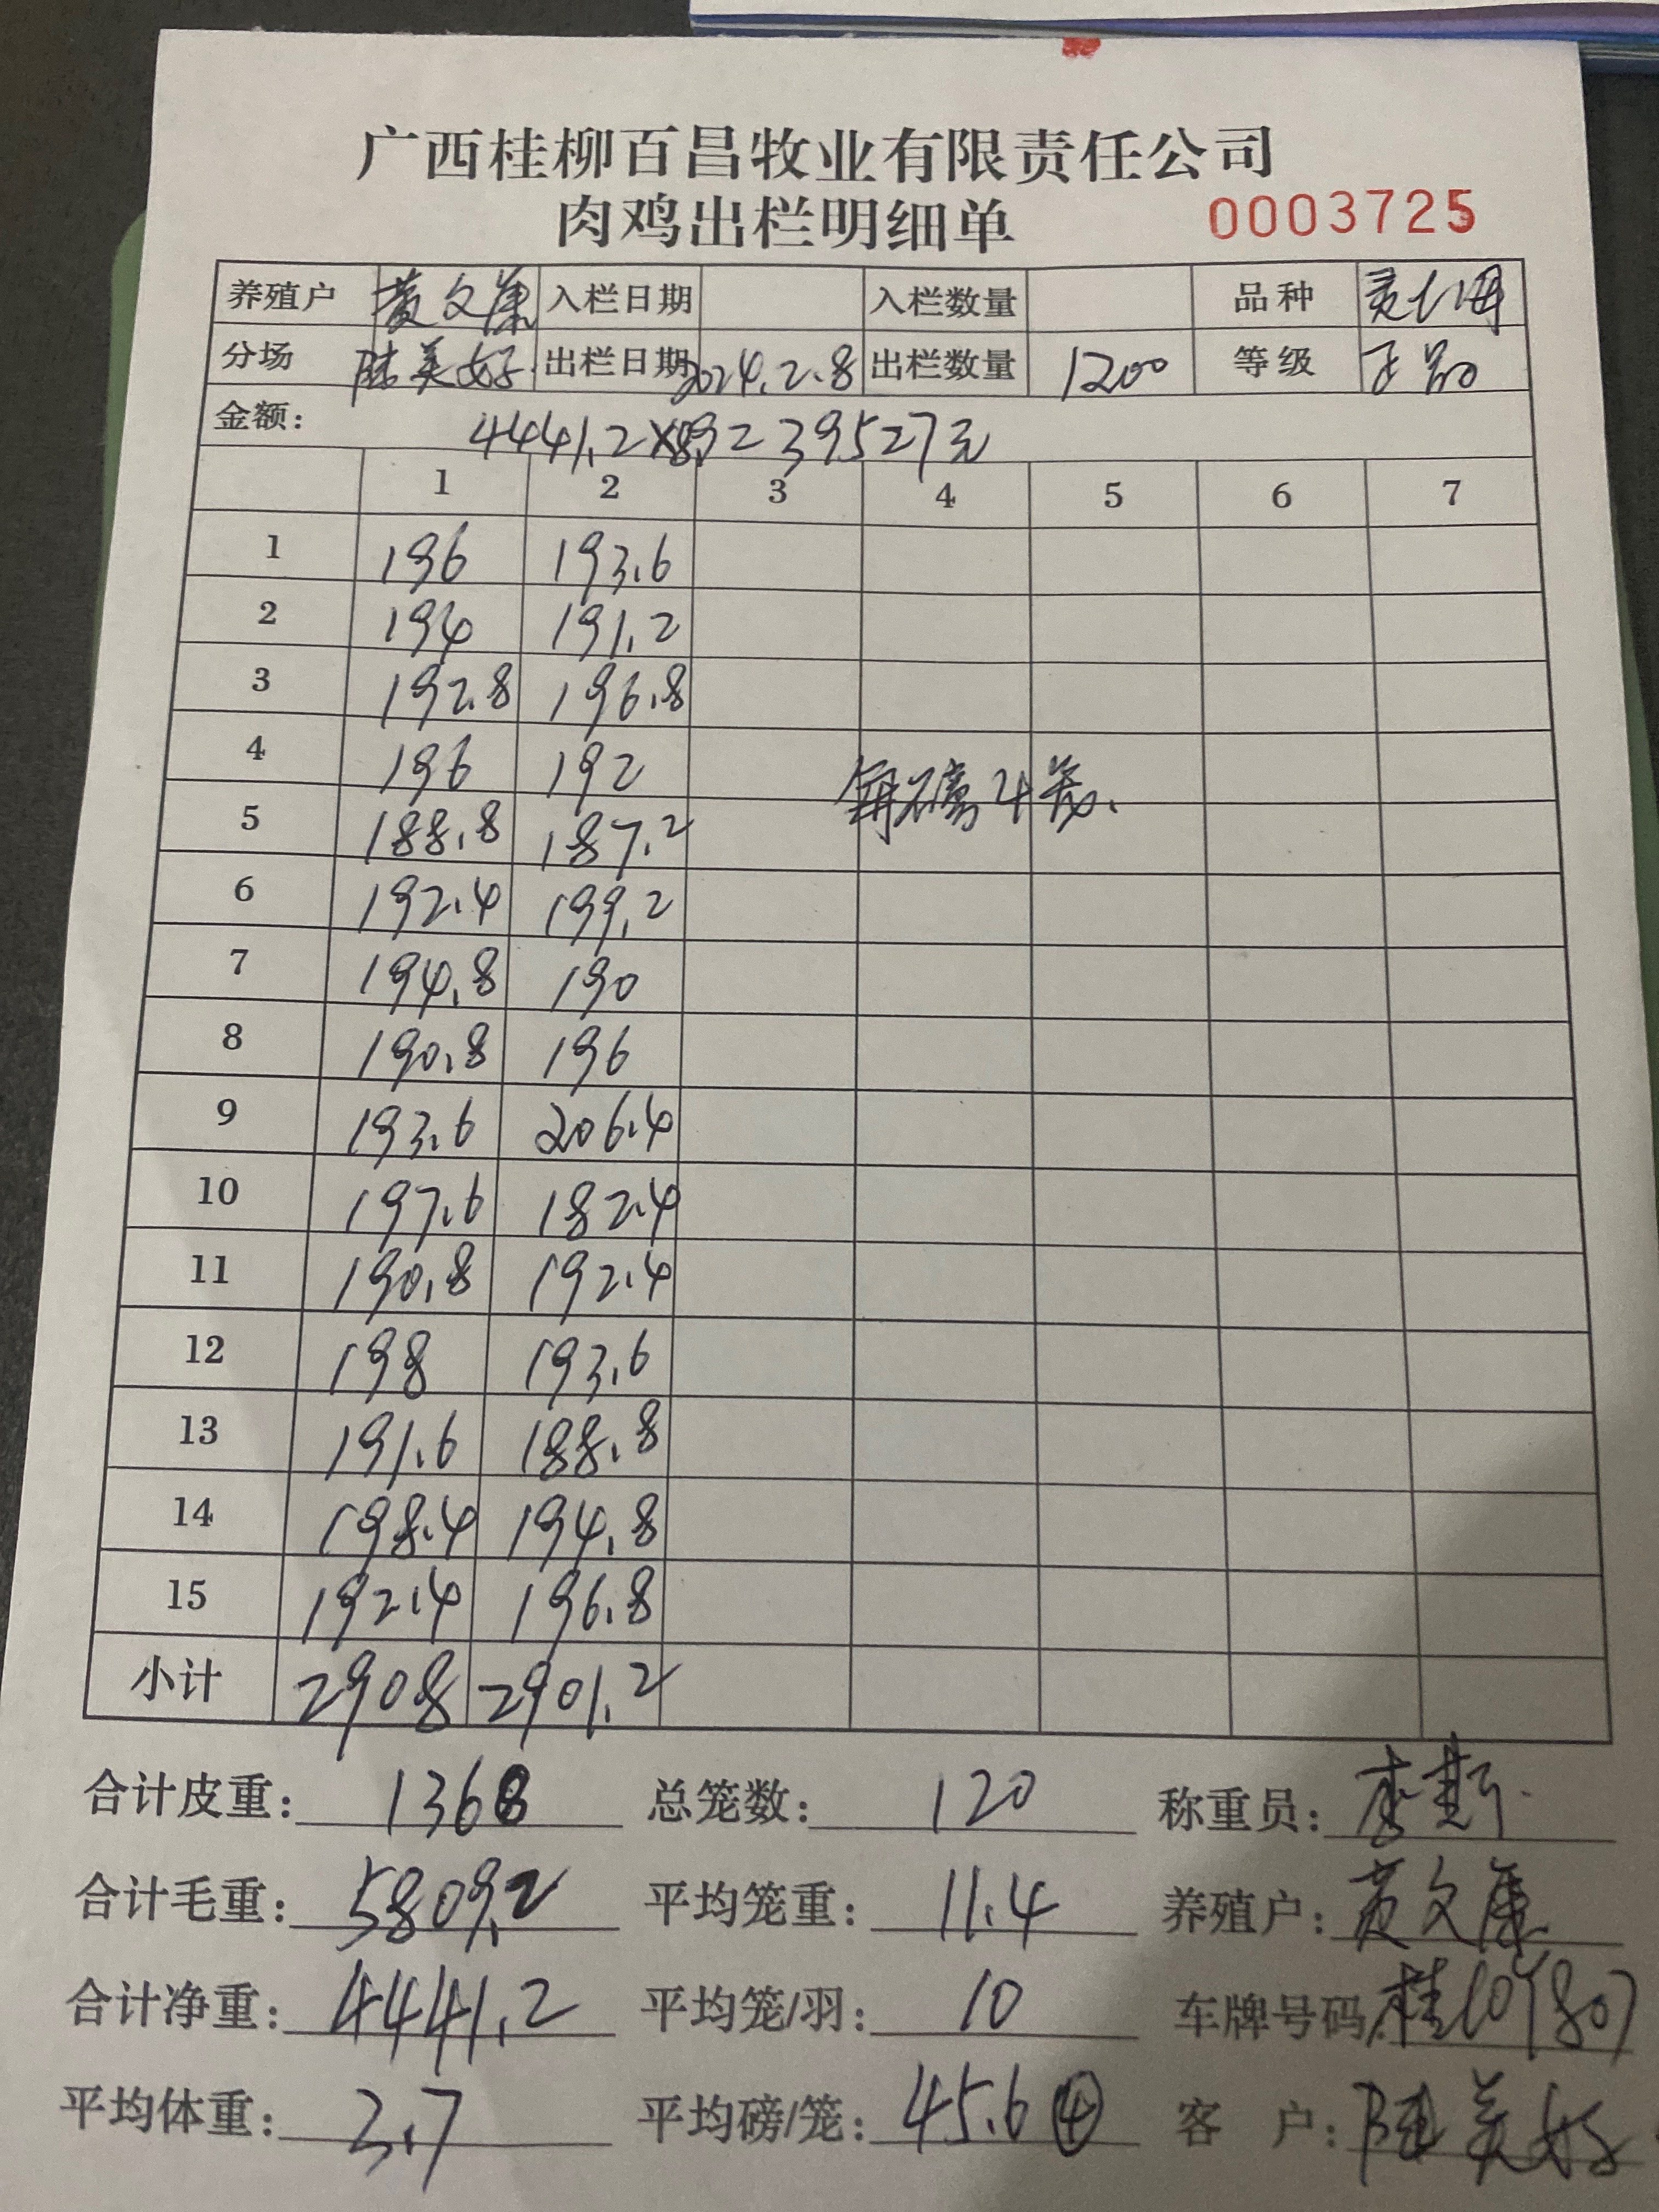 广西桂柳百昌牧业有限责任公司
肉鸡出栏明细单 0003725
养殖户 黄文康 入栏日期 入栏数量 品种
分场 陆美好 出栏日期 2024.2.8 出栏数量 1200 等级 正品
金额: 4441.2×8.9=39527元
1 2 3 4 5 6 7
1 196 193.6
2 194 191.2
3 192.8 196.8
4 196 192
每磅4笼.
5 188.8 187.2
6 192.4 199.2
7 194.8 190
8 190.8 196
9 193.6 206.4
10 197.6 182.4
11 190.8 192.4
12 198 193.6
13 191.6 188.8
14 198.4 194.8
15 192.4 196.8
小计 2908 2901.2
合计皮重: 1368 总笼数: 120 称重员:
合计毛重: 5809.2 平均笼重: 11.4 养殖户: 黄文康
合计净重: 4441.2 平均笼/羽: 10 车牌号码:
平均体重: 3.7 平均磅/笼: 45.6 ④ 客户: 陆美好